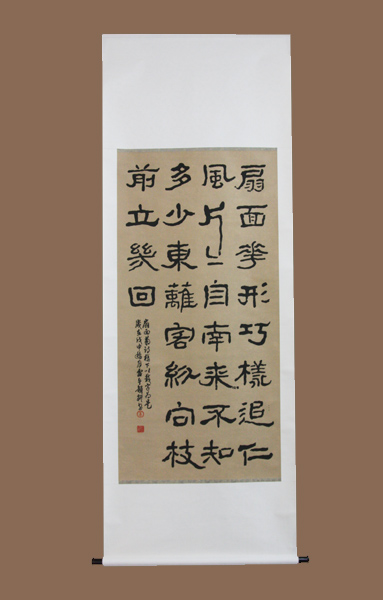 扇面花形巧樣追仁
風片〻自南来不知
多少東籬客紛向枝
前立幾回